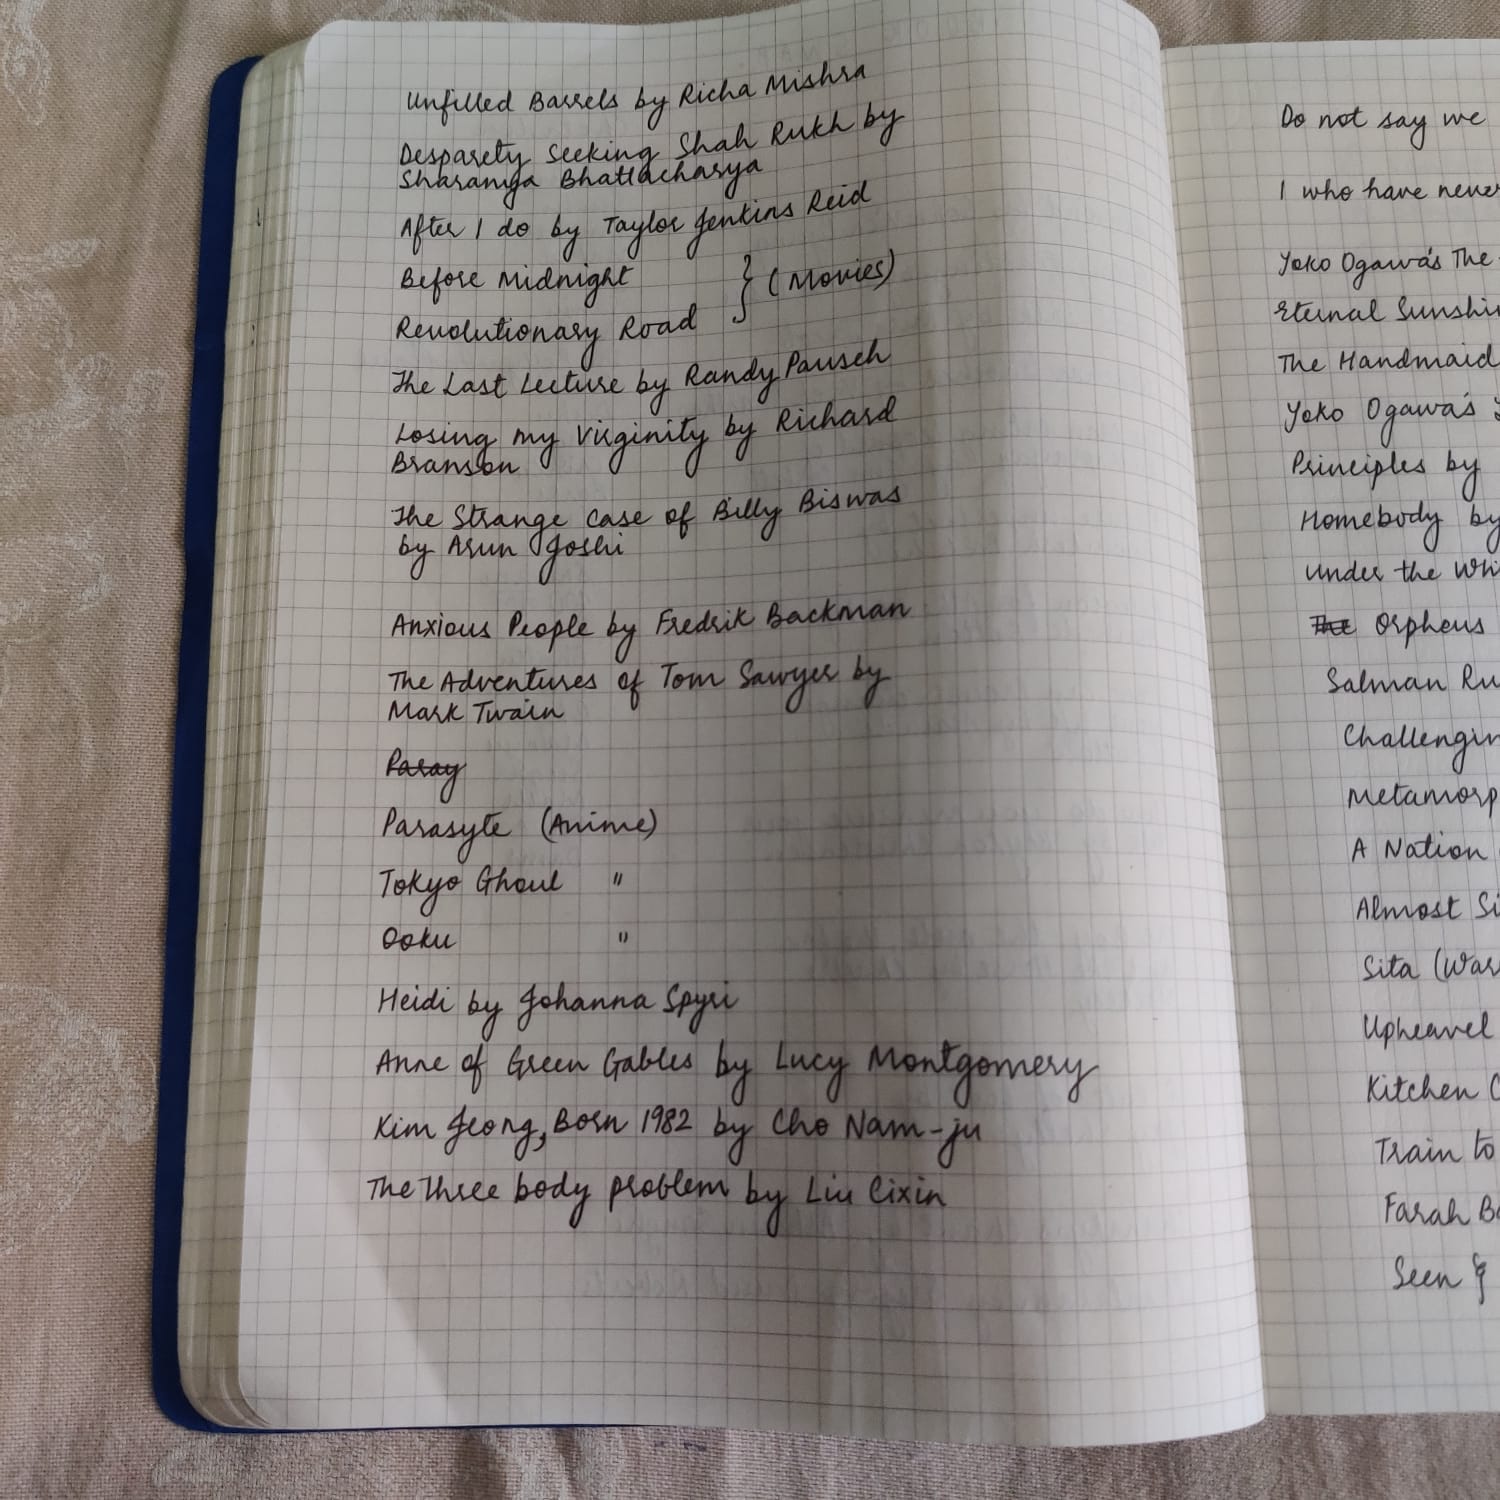 Unfilled Barrels by Richa Mishra
Desparety Seeking Shah Rukh by
Sharanya Bhattacharya
After I do by Taylor Jenkins Reid
Before Midnight
} (Movies)
Revolutionary Road
The Last Lecture by Randy Pausch
Losing my Virginity by Richard
Branson
The Strange case of Billy Biswas
by Arun Joshi
Anxious People by Fredrik Backman
The Adventures of Tom Sawyer by
Mark Twain
Paray
Parasyte (Anime)
Tokyo Ghoul "
Ooku "
Heidi by Johanna Spyri
Anne of Green Gables by Lucy Montgomery
Kim Jeong, Born 1982 by Cho Nam-ju
The Three body problem by Liu Cixin
Do not say we
I who have never
Yoko Ogawa's The
Eternal Sunshin
The Handmaid
Yoko Ogawa's
Principles by
Homebody by
Under the Whi
The Orpheus
Salman Ru
Challengin
Metamorp
A Nation
Almost Si
Sita (War
Upheavel
Kitchen C
Train to
Farah Ba
Seen &